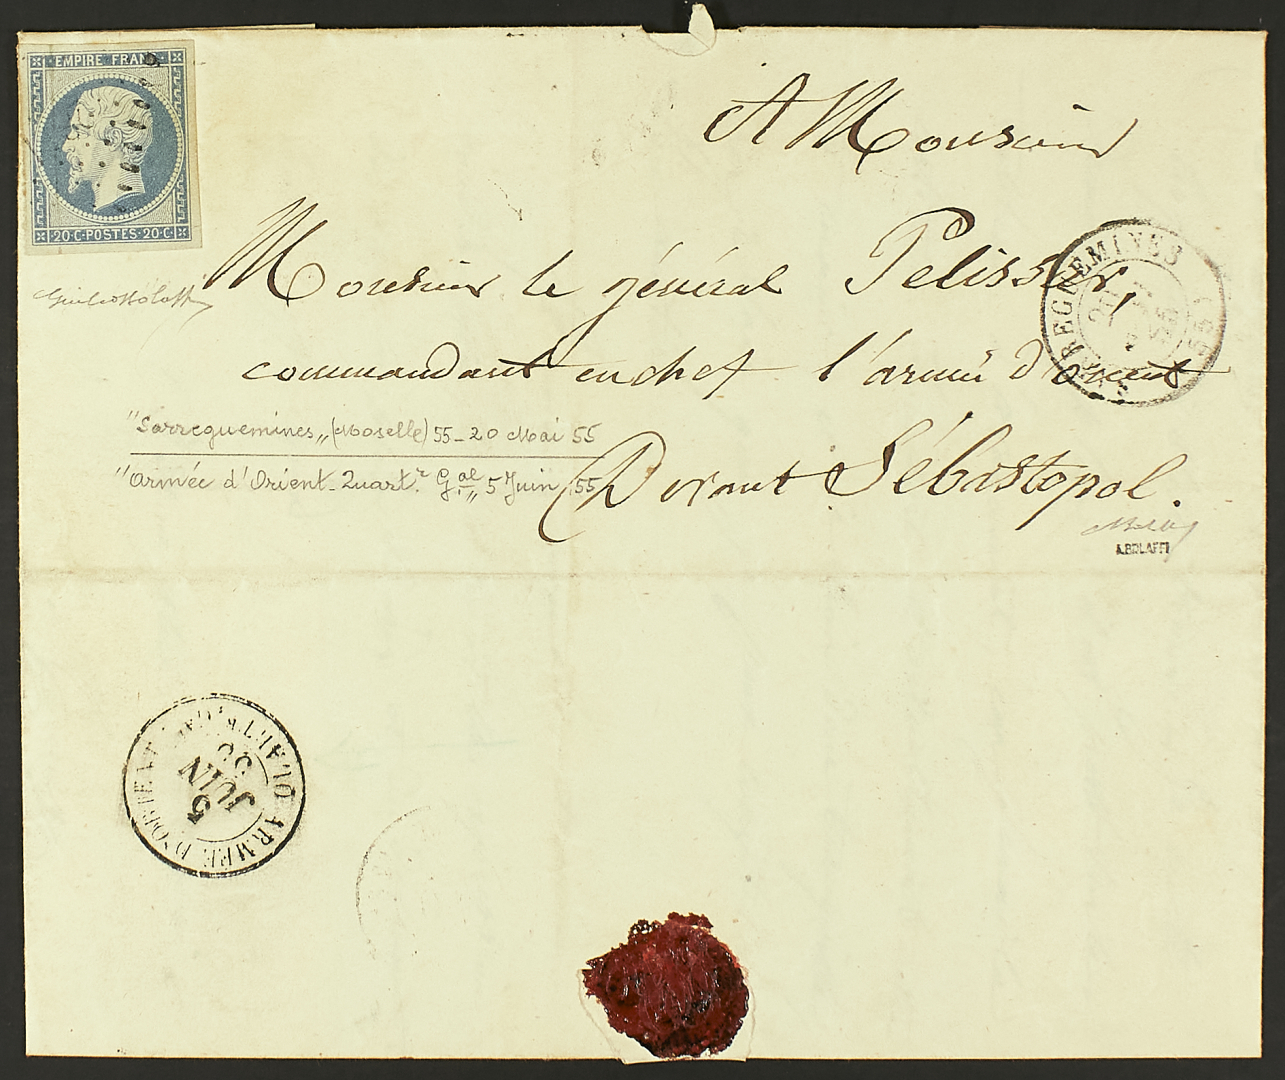 EMPIRE FRANC
20·C·POSTES·20·C·
A Monsieur
Monsieur le général Pelissier,
commandant en chef l'armée d'Orient
Devant Sébastopol.
SARREGUEMINES (55)
20 MAI 55
"Sarreguemines„ (Moselle) 55 - 20 Mai 55
"Armée d'Orient - Quart.r Gal.„ 5 Juin 55
A.BOLAFFI
ARMÉE D'ORIENT QUART.R GAL
5
JUIN
55